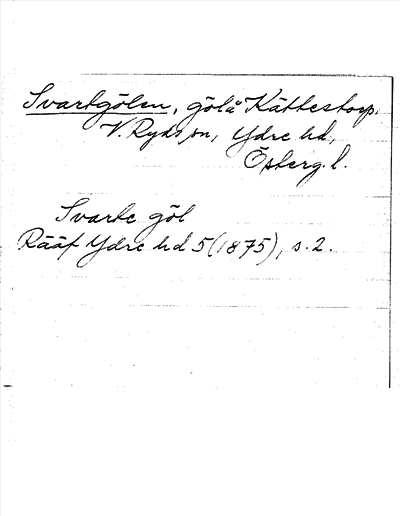 Svartgölen, göl å Kättestorp,
V. Ryds sn, Ydre hd,
Österg. l.
Svarte göl
Rääf Ydre hd 5 (1875), s. 2.